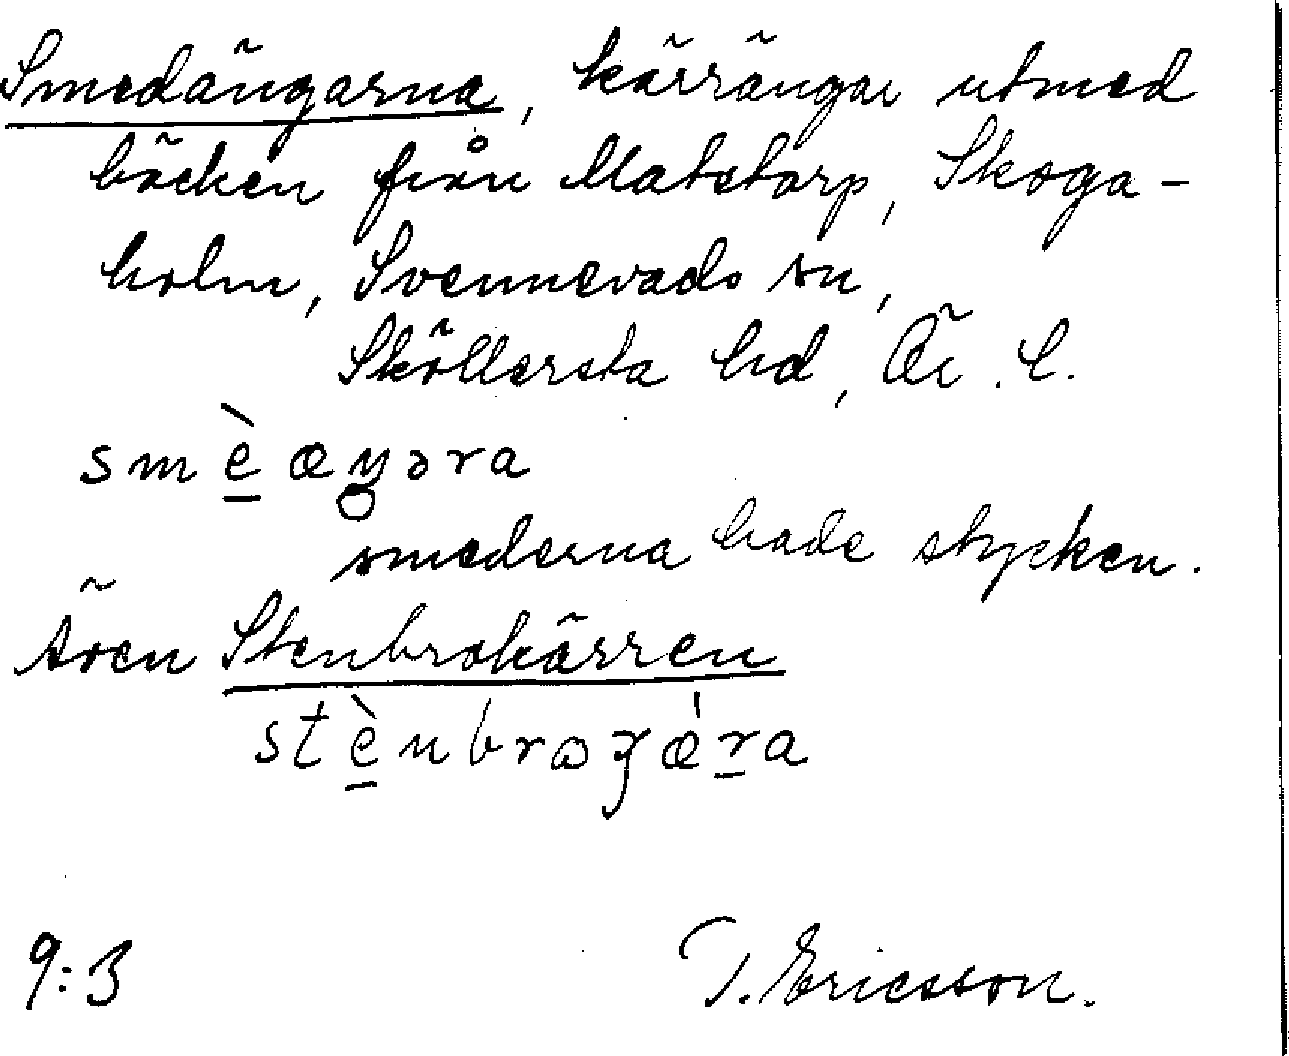 Smedängarna, kärrängar utmed
bäcken från Matstorp, Skoga-
holm, Svennevads sn,
Sköllersta hd, Ör. l.
smè̠æŋəra
smederna hade stycken.
Även Stenbrokärren
stè̠nbroɣæ̀r̠a
9:3
T. Ericsson.